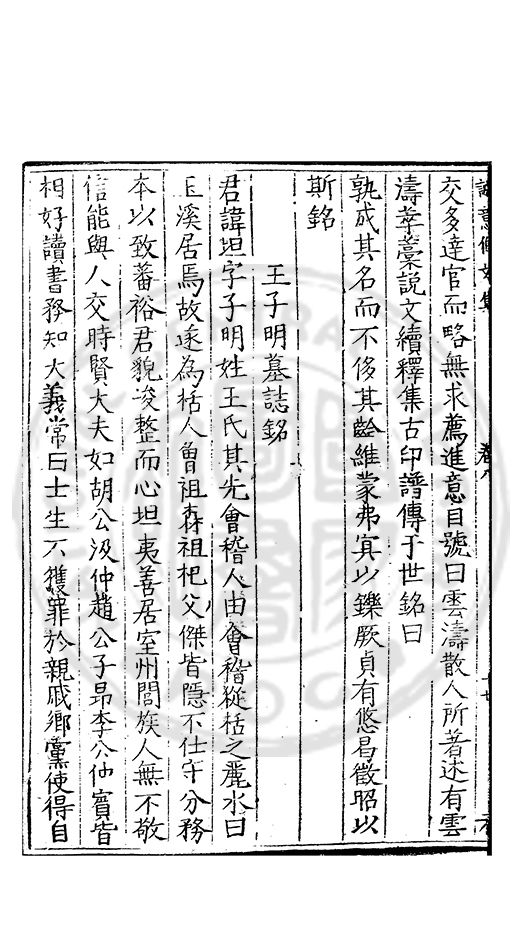 交多達官而略無求薦進意自號曰雲濤散人所著述有雲
濤萃藁說文續釋集古印譜傳于世銘曰
孰成其名而不侈其齡維蒙弗寘以鑠厥貞有悠昌徵昭以
斯銘
王子明墓誌銘
君諱坦字子明姓王氏其先會稽人由會稽從栝之麗水曰
玉溪居焉故遂為栝人曾祖森祖杞父傑皆隱不仕守分務
本以致蕃裕君貌峻整而心坦夷善居室州閭族人無不敬
信能與人交時賢大夫如胡公汲仲趙公子昂李公仲賓皆
相好讀書務知大義常曰士生不獲罪於親戚鄉黨使得自